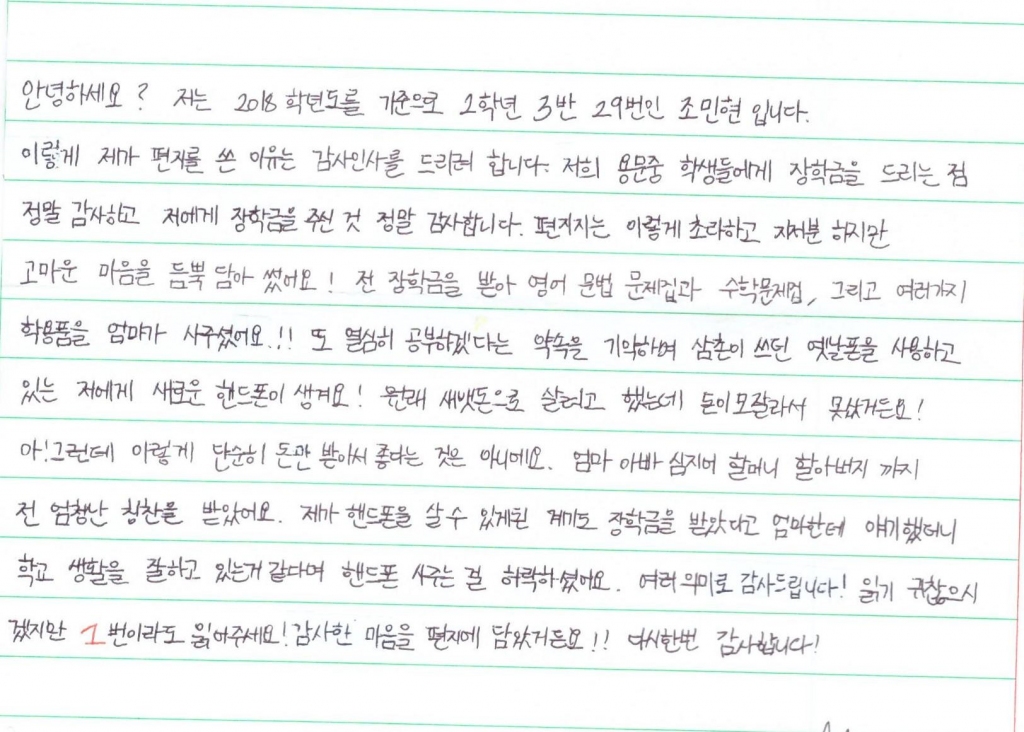 안녕하세요? 저는 2018 학년도를 기준으로 2학년 3반 29번인 조민현 입니다.
이렇게 제가 편지를 쓴 이유는 감사인사를 드리려 합니다. 저희 용문중 학생들에게 장학금을 드리는 점
정말 감사하고 저에게 장학금을 주신 것 정말 감사합니다. 편지지는 이렇게 초라하고 지저분 하지만
고마운 마음을 듬뿍 담아 썼어요! 전 장학금을 받아 영어 문법 문제집과 수학문제집, 그리고 여러가지
학용품을 엄마가 사주셨어요.!! 또 열심히 공부하겠다는 약속을 기약하며 삼촌이 쓰던 옛날폰을 사용하고
있는 저에게 새로운 핸드폰이 생겨요! 원래 새뱃돈으로 살려고 했는데 돈이모잘라서 못샀거든요!
아!그런데 이렇게 단순히 돈만 받아서 좋다는 것은 아니에요. 엄마 아빠 심지어 할머니 할아버지 까지
전 엄청난 칭찬을 받았어요. 제가 핸드폰을 살 수 있게된 계기도 장학금을 받았다고 엄마한테 얘기했더니
학교 생활을 잘하고 있는거 같다며 핸드폰 사주는 걸 허락하셨어요. 여러 의미로 감사드립니다! 읽기 귀찮으시
겠지만 1번이라도 읽어주세요! 감사한 마음을 편지에 담았거든요!! 다시한번 감사합니다!